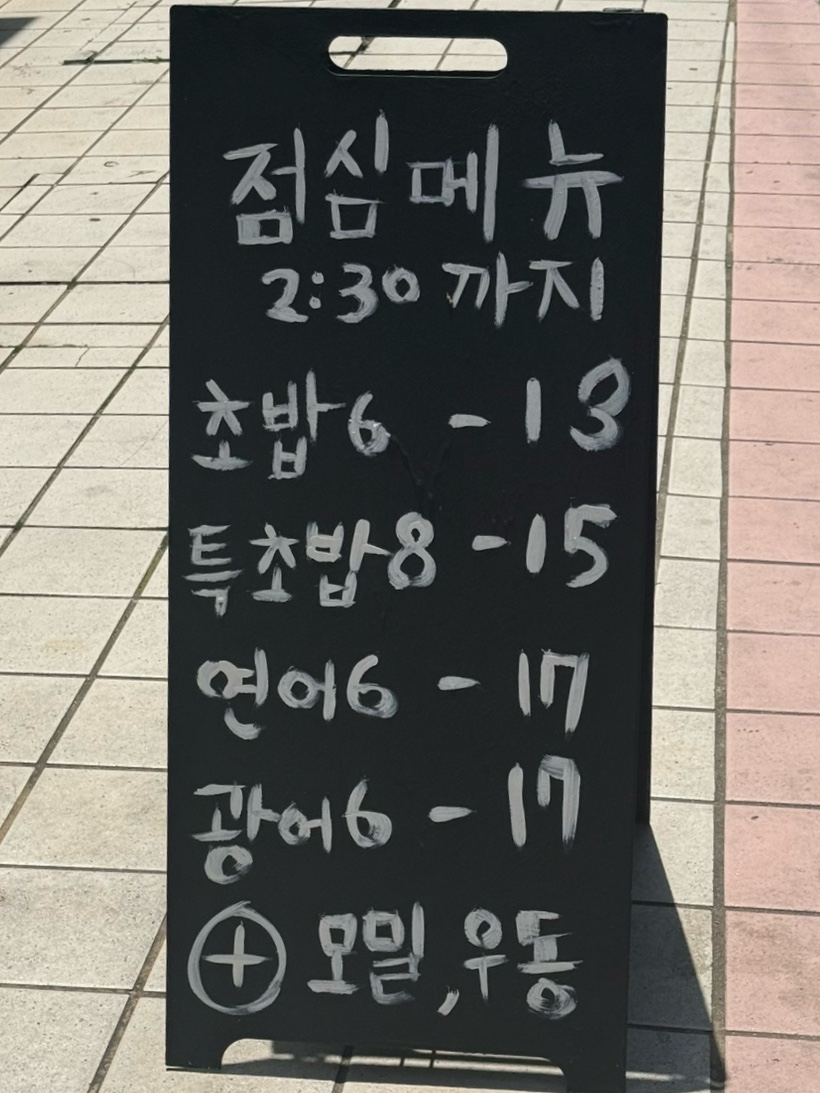 점심메뉴
2:30 까지
초밥6 - 13
특초밥8 - 15
연어6 - 17
광어6 - 17
⊕ 모밀, 우동